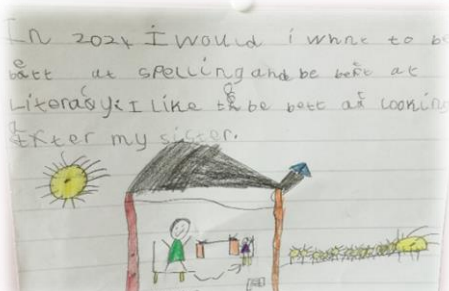 In 2024 I would i whnt to be
bett at spelling and be bett at
Literacy. I Like to be bett at Looking
after my sister.